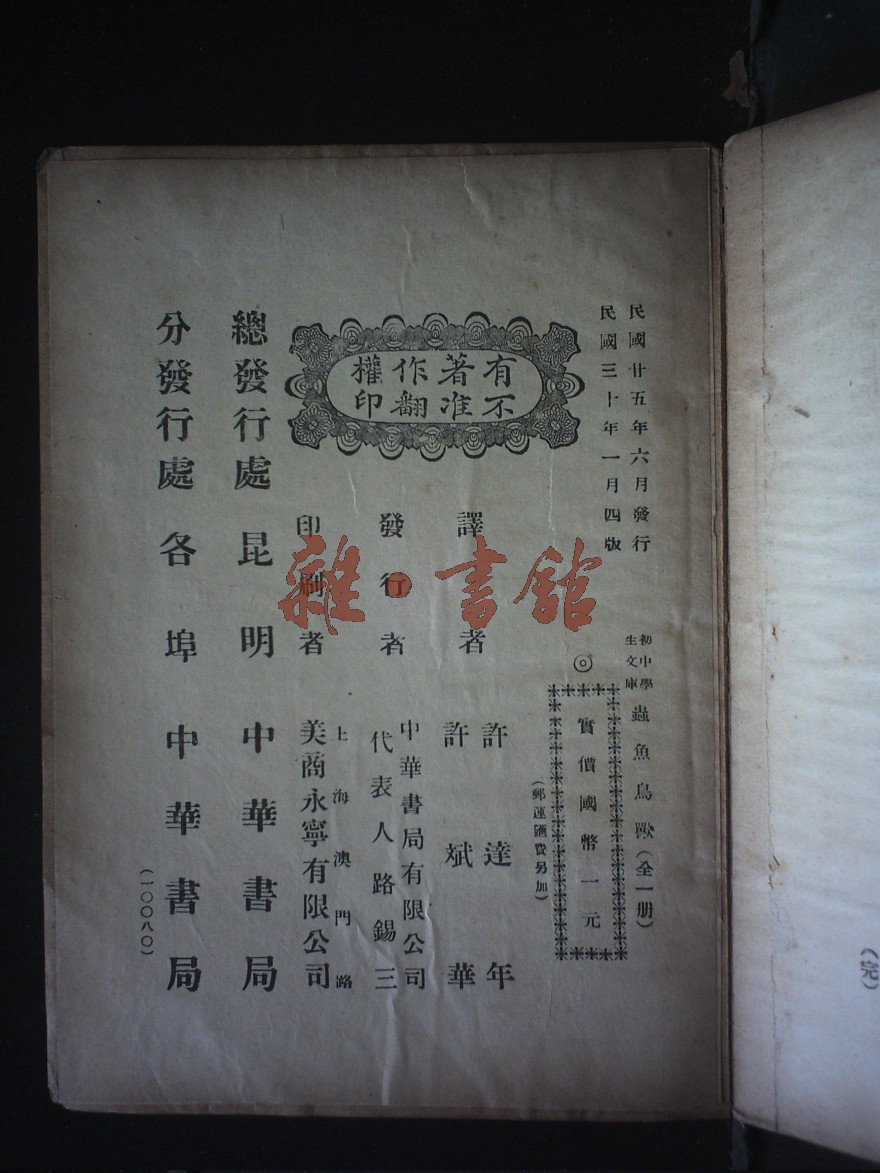 民國廿五年六月發行
民國三十年一月四版
初中學
生文庫
蟲魚鳥獸（全一册）
◎
實價國幣一元
（郵運匯費另加）
有著作權
不准翻印
譯者
許達年
許斌華
發行者
中華書局有限公司
代表人路錫三
印刷者
上海澳門路
美商永寧有限公司
總發行處 昆明 中華書局
分發行處 各埠 中華書局
（一〇〇八〇）
雜·書館
（完）